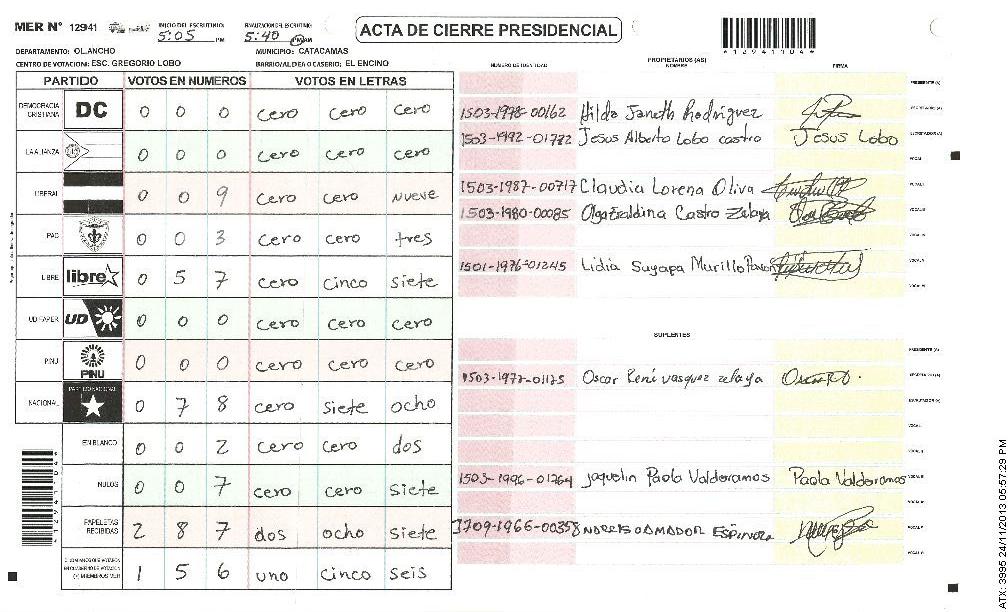 MER N° 12941 INICIO DEL ESCRUTINIO: 5:05 PM FINALIZACION DEL ESCRUTINIO: 5:40 PM AM
ACTA DE CIERRE PRESIDENCIAL
DEPARTAMENTO: OLANCHO MUNICIPIO: CATACAMAS
CENTRO DE VOTACION: ESC. GREGORIO LOBO BARRIO/ALDEA O CASERIO: EL ENCINO
PARTIDO VOTOS EN NUMEROS VOTOS EN LETRAS
DEMOCRACIA CRISTIANA DC 0 0 0 cero cero cero
LA ALIANZA 0 0 0 cero cero cero
LIBERAL 0 0 9 cero cero nueve
PAC 0 0 3 cero cero tres
LIBRE libre 0 5 7 cero cinco siete
UD FAPER UD 0 0 0 cero cero cero
PINU PINU 0 0 0 cero cero cero
NACIONAL PARTIDO NACIONAL 0 7 8 cero siete ocho
EN BLANCO 0 0 2 cero cero dos
NULOS 0 0 7 cero cero siete
PAPELETAS RECIBIDAS 2 8 7 dos ocho siete
1 5 6 uno cinco seis
PROPIETARIOS (AS)
NUMERO DE IDENTIDAD NOMBRE FIRMA
PRESIDENTE (A)
1503-1978-00162 Hilda Janeth Rodriguez SECRETARIO (A)
1503-1992-01782 Jesus Alberto Lobo castro Jesus Lobo ESCRUTADOR (A)
VOCAL I
1503-1987-00717 Claudia Lorena Oliva VOCAL II
1503-1980-00085 Olga Esaldina Castro Zelaya VOCAL III
VOCAL IV
1501-1976-01245 Lidia Suyapa Murillo Pavon VOCAL V
VOCAL VI
SUPLENTES
PRESIDENTE (A)
1503-1977-01175 Oscar René vasquez zelaya SECRETARIO (A)
ESCRUTADOR (A)
VOCAL I
VOCAL II
1503-1996-01764 Jaquelin Paola Valdoramos Paola Valdoramos VOCAL III
VOCAL IV
1709-1966-00358 VOCAL V
VOCAL VI
ATX: 3995 24/11/2013 05:57:29 PM